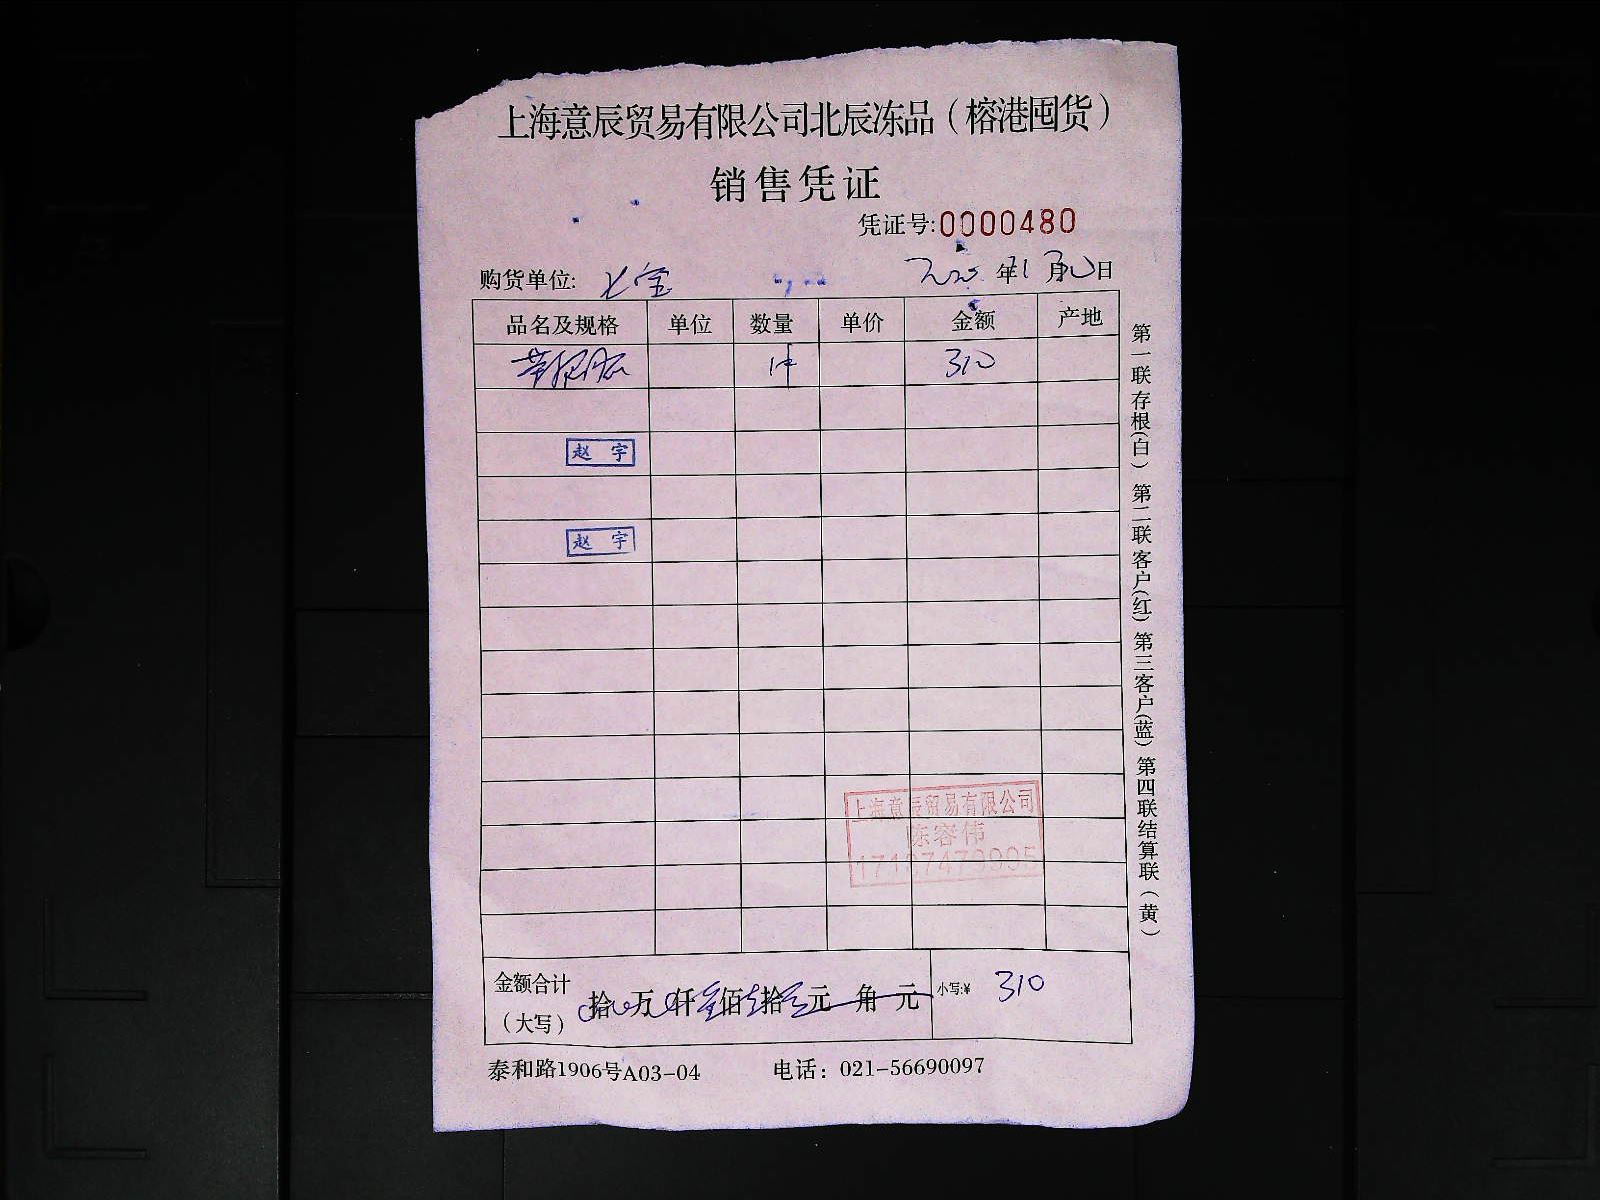 上海意辰贸易有限公司北辰冻品（榕港囤货）
销售凭证
凭证号:0000480
购货单位: 七宝 年 月 日
品名及规格 单位 数量 单价 金额 产地
1件 310
赵宇
赵宇
上海意辰贸易有限公司
陈容伟
金额合计（大写） 拾 万 仟 叁佰 壹拾 元 角 元 小写:¥ 310
泰和路1906号A03-04 电话：021-56690097
第一联存根(白) 第二联客户(红) 第三客户(蓝) 第四联结算联（黄）